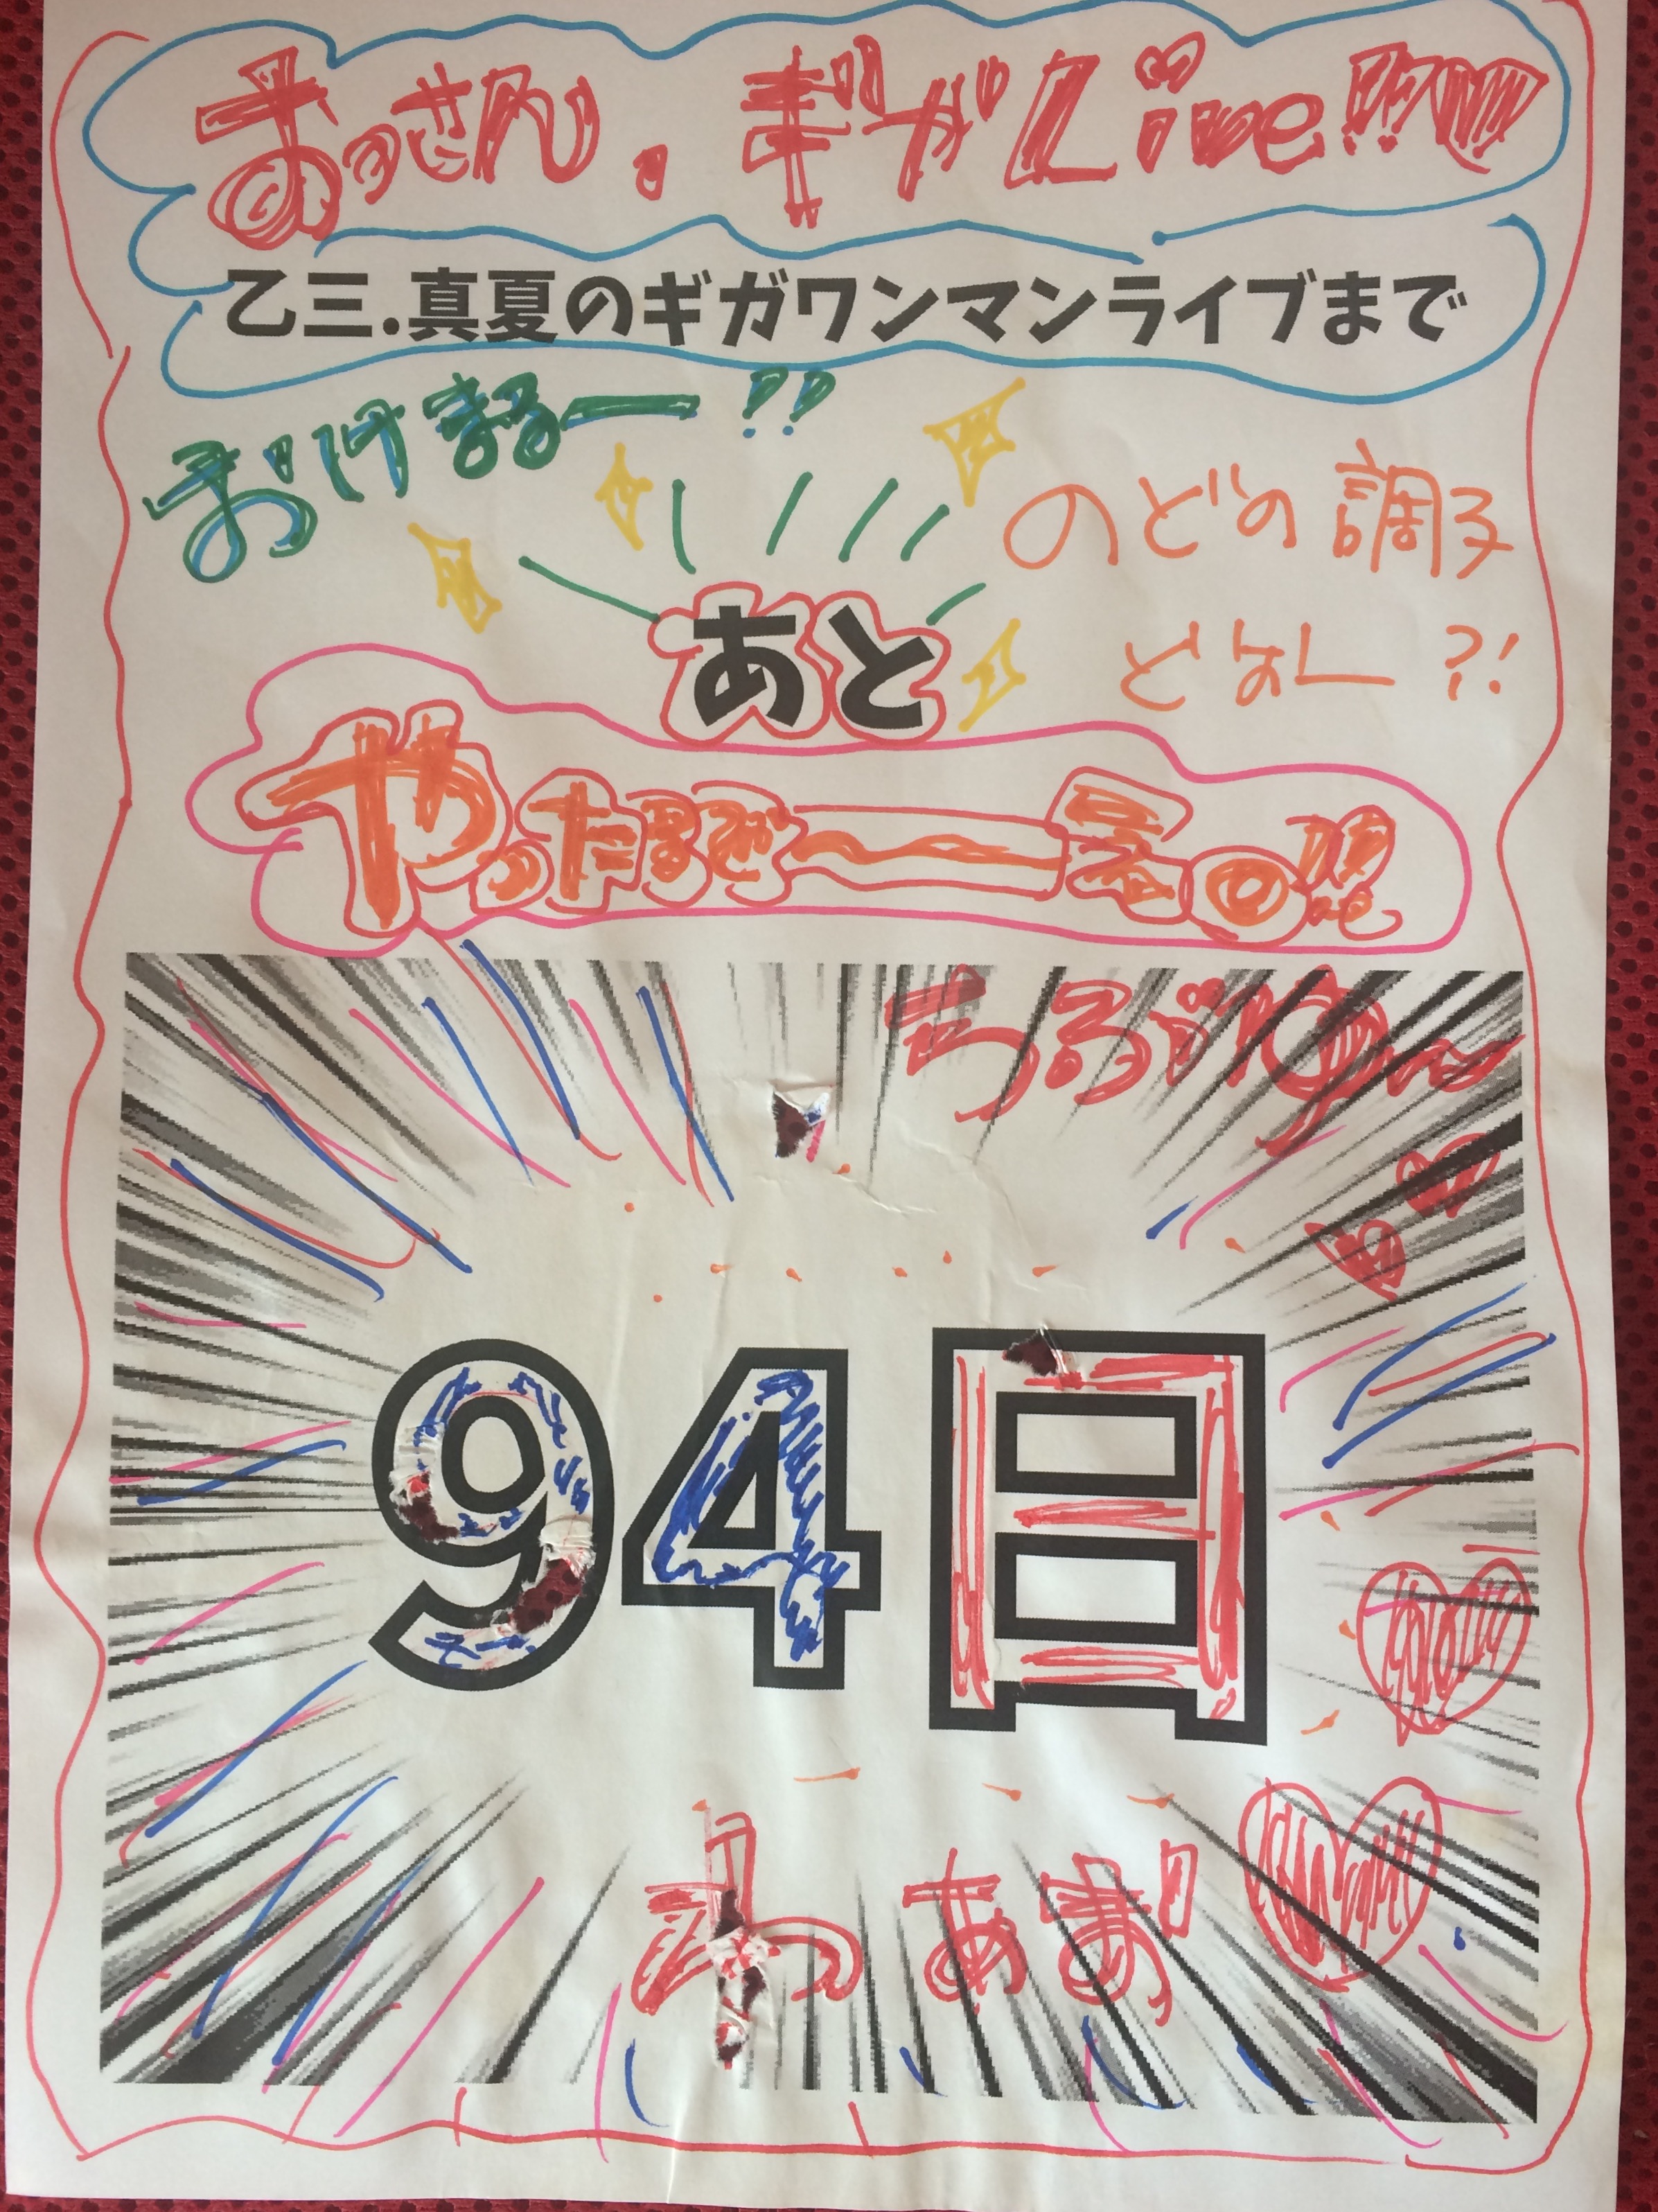 おっさん.ギガLive!!
乙三.真夏のギガワンマンライブまで
おけまるー!?
のどの調子
どおー?!
あと
やったるぞ〜
94日
わぁお!